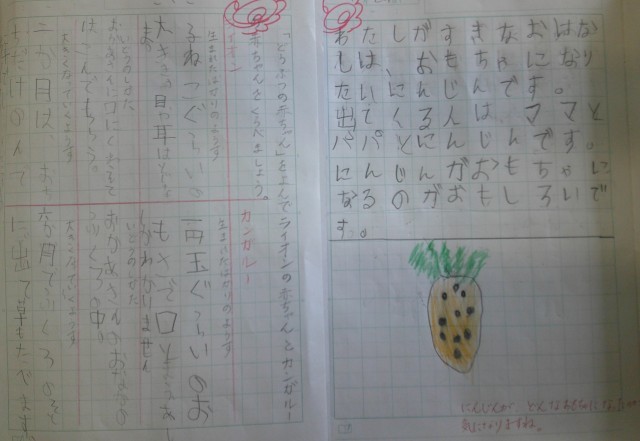 わたしがすきなおはな
しは、おもちゃになり
たいにんじんです。
出てくる人は、ママと
パパとにんじんです。
にんじんがおもちゃに
なるのがおもしろいで
す。
にんじんが どんなおもちゃに
気になりますね。
「どうぶつの赤ちゃん」をよんでライオンの赤ちゃんとカンガルー
の赤ちゃんをくらべましょう。
ライオン
生まれたばかりのようす
子ねこぐらいの
大きさ 目や耳は
まま
いどうのしかた
おかあさんに口にくわえて
はこんでもらう。
大きくなっていくようす
二か月は、お
ちだけのんで
カンガルー
生まれたばかりのようす
一円玉ぐらいのお
もさで口と あし
しかわかりません
いどうのしかた
おかあさんのおなかの
ふくろの中。
大きくなっていくようす
六か月でふくろのそと
に出て草もたべます